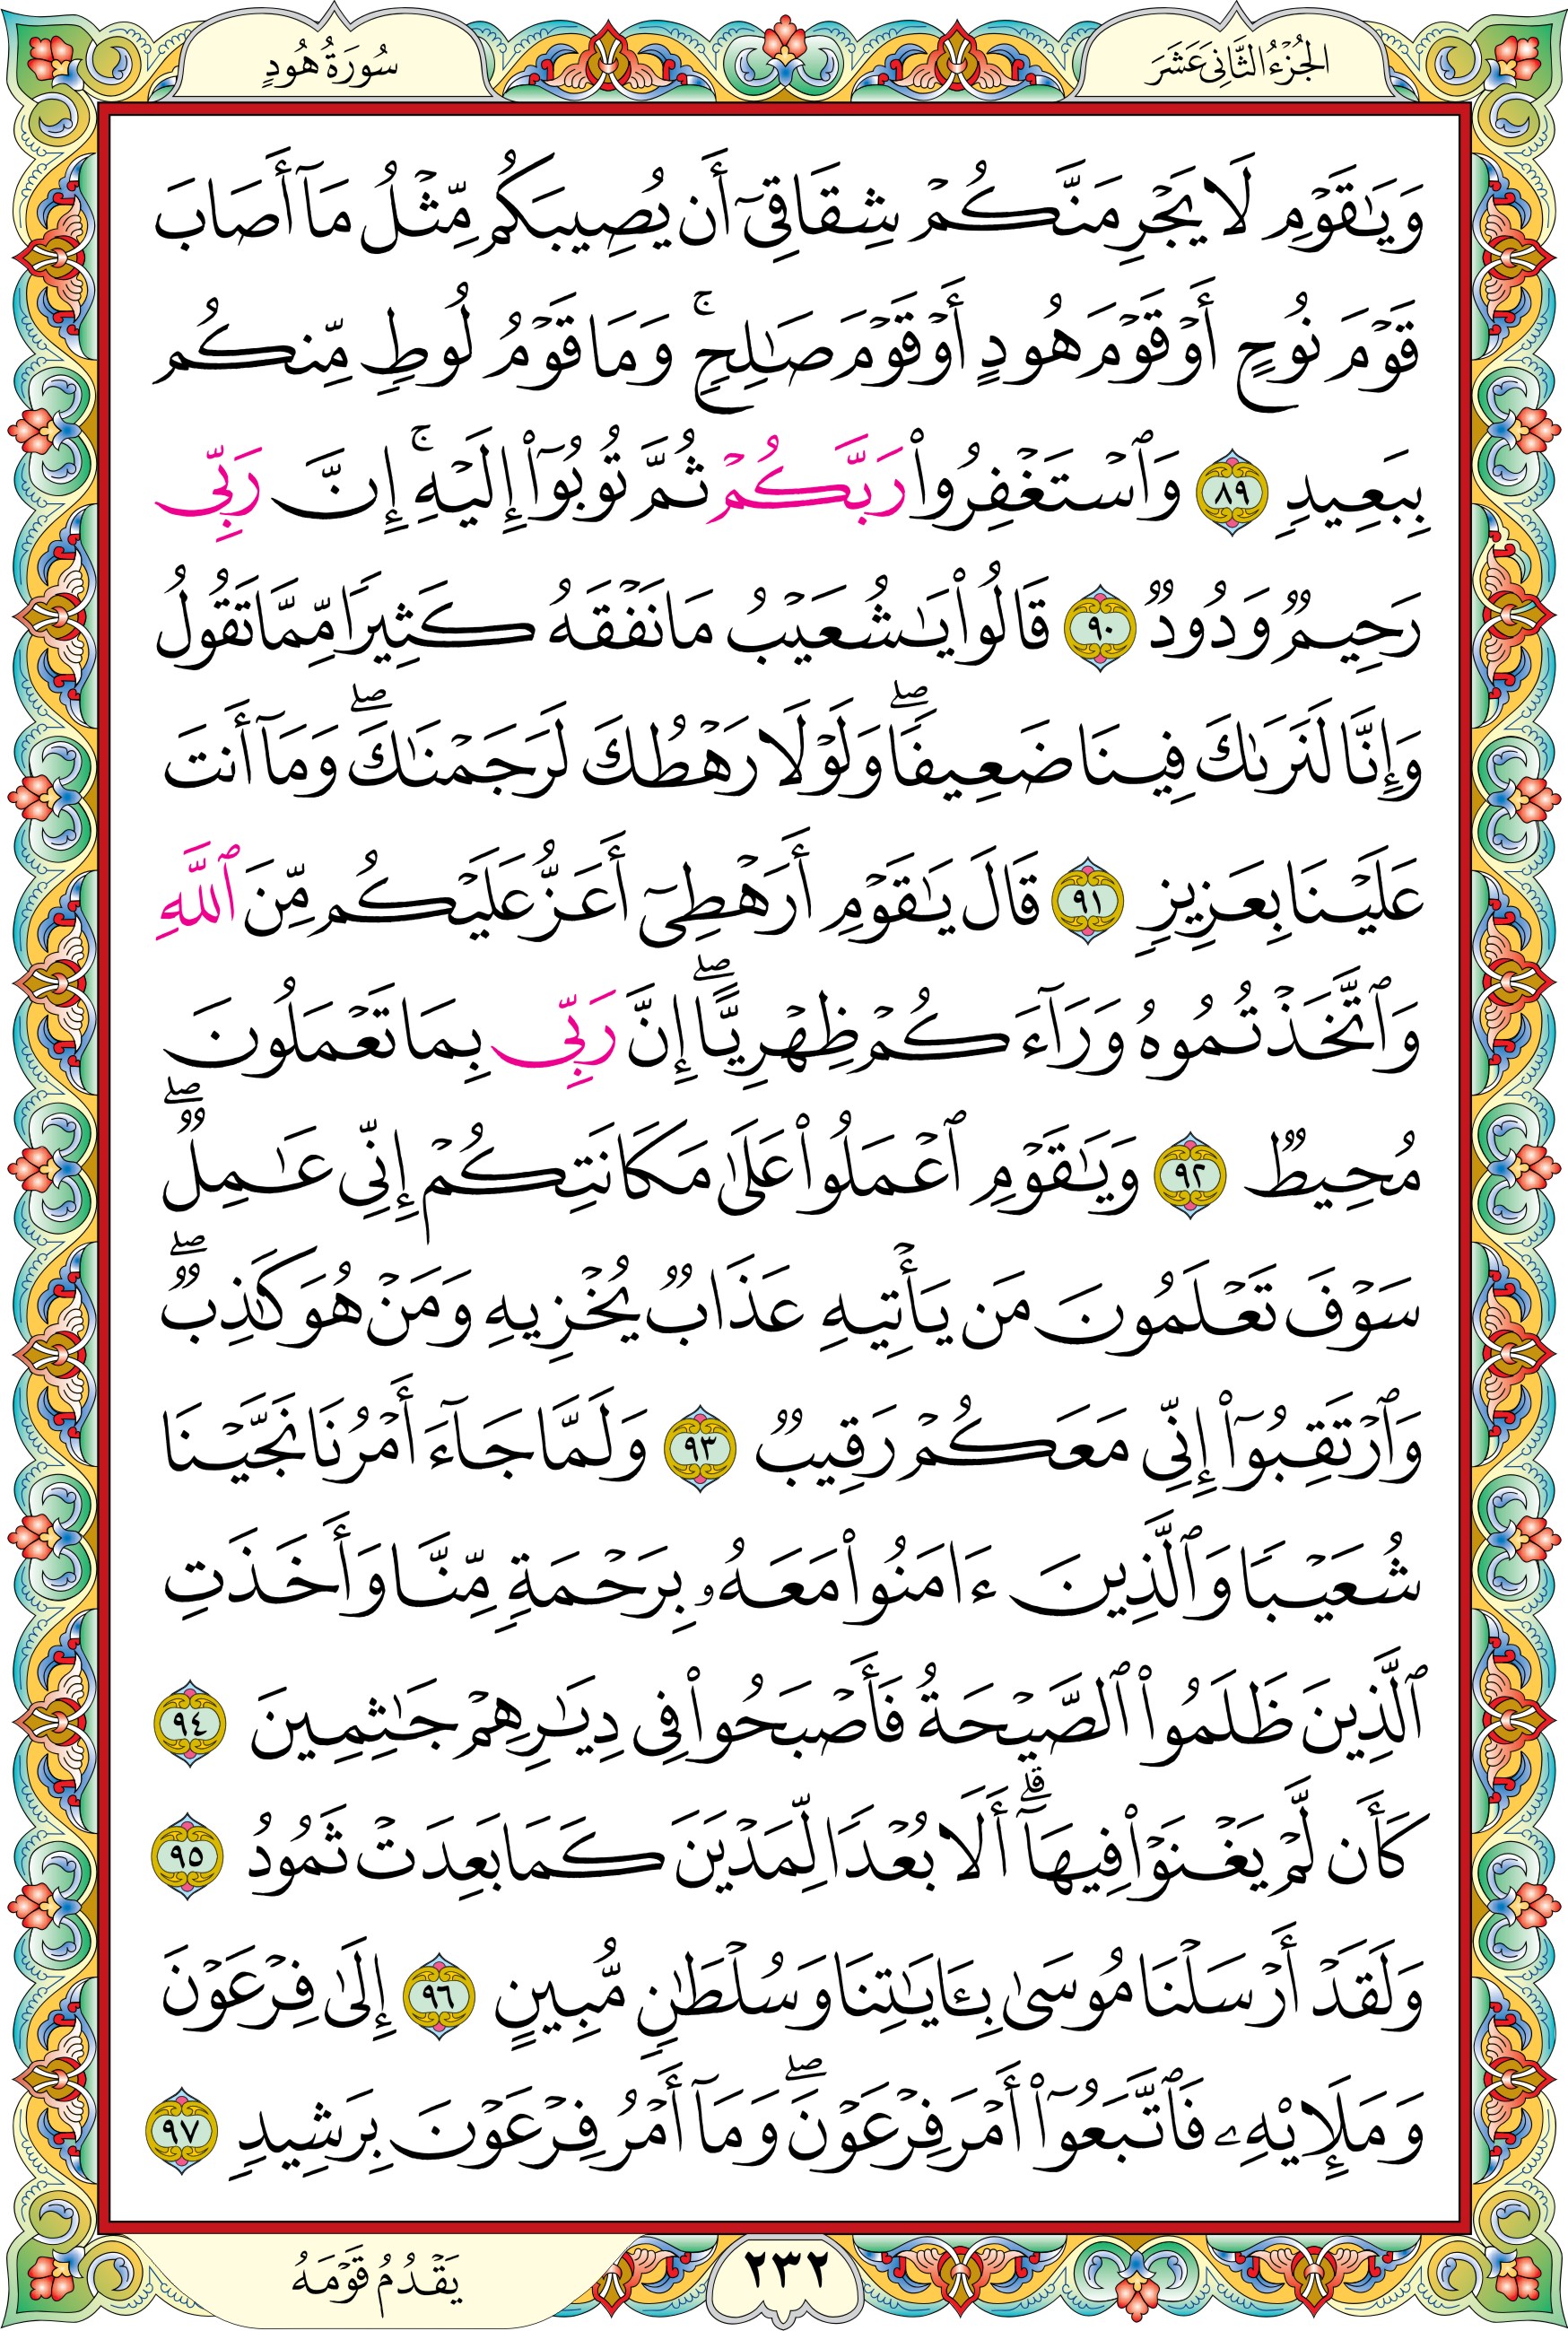 الجُزْءُ الثَّانِي عَشَرَ
سُورَةُ هُودٍ
وَيَٰقَوْمِ لَا يَجْرِمَنَّكُمْ شِقَاقِيٓ أَن يُصِيبَكُم مِّثْلُ مَآ أَصَابَ
قَوْمَ نُوحٍ أَوْ قَوْمَ هُودٍ أَوْ قَوْمَ صَٰلِحٍۚ وَمَا قَوْمُ لُوطٍ مِّنكُم
بِبَعِيدٍ ٨٩ وَٱسْتَغْفِرُوا۟ رَبَّكُمْ ثُمَّ تُوبُوٓا۟ إِلَيْهِۚ إِنَّ رَبِّي
رَحِيمٌ وَدُودٌ ٩٠ قَالُوا۟ يَٰشُعَيْبُ مَا نَفْقَهُ كَثِيرًا مِّمَّا تَقُولُ
وَإِنَّا لَنَرَىٰكَ فِينَا ضَعِيفًاۖ وَلَوْلَا رَهْطُكَ لَرَجَمْنَٰكَۖ وَمَآ أَنتَ
عَلَيْنَا بِعَزِيزٍ ٩١ قَالَ يَٰقَوْمِ أَرَهْطِيٓ أَعَزُّ عَلَيْكُم مِّنَ ٱللَّهِ
وَٱتَّخَذْتُمُوهُ وَرَآءَكُمْ ظِهْرِيًّاۖ إِنَّ رَبِّي بِمَا تَعْمَلُونَ
مُحِيطٌ ٩٢ وَيَٰقَوْمِ ٱعْمَلُوا۟ عَلَىٰ مَكَانَتِكُمْ إِنِّي عَٰمِلٌۖ
سَوْفَ تَعْلَمُونَ مَن يَأْتِيهِ عَذَابٌ يُخْزِيهِ وَمَنْ هُوَ كَٰذِبٌۖ
وَٱرْتَقِبُوٓا۟ إِنِّي مَعَكُمْ رَقِيبٌ ٩٣ وَلَمَّا جَآءَ أَمْرُنَا نَجَّيْنَا
شُعَيْبًا وَٱلَّذِينَ ءَامَنُوا۟ مَعَهُۥ بِرَحْمَةٍ مِّنَّا وَأَخَذَتِ
ٱلَّذِينَ ظَلَمُوا۟ ٱلصَّيْحَةُ فَأَصْبَحُوا۟ فِي دِيَٰرِهِمْ جَٰثِمِينَ ٩٤
كَأَن لَّمْ يَغْنَوْا۟ فِيهَآۗ أَلَا بُعْدًا لِّمَدْيَنَ كَمَا بَعِدَتْ ثَمُودُ ٩٥
وَلَقَدْ أَرْسَلْنَا مُوسَىٰ بِـَٔايَٰتِنَا وَسُلْطَٰنٍ مُّبِينٍ ٩٦ إِلَىٰ فِرْعَوْنَ
وَمَلَإِي۟هِۦ فَٱتَّبَعُوٓا۟ أَمْرَ فِرْعَوْنَۖ وَمَآ أَمْرُ فِرْعَوْنَ بِرَشِيدٍ ٩٧
٢٣٢
يَقْدُمُ قَوْمَهُ